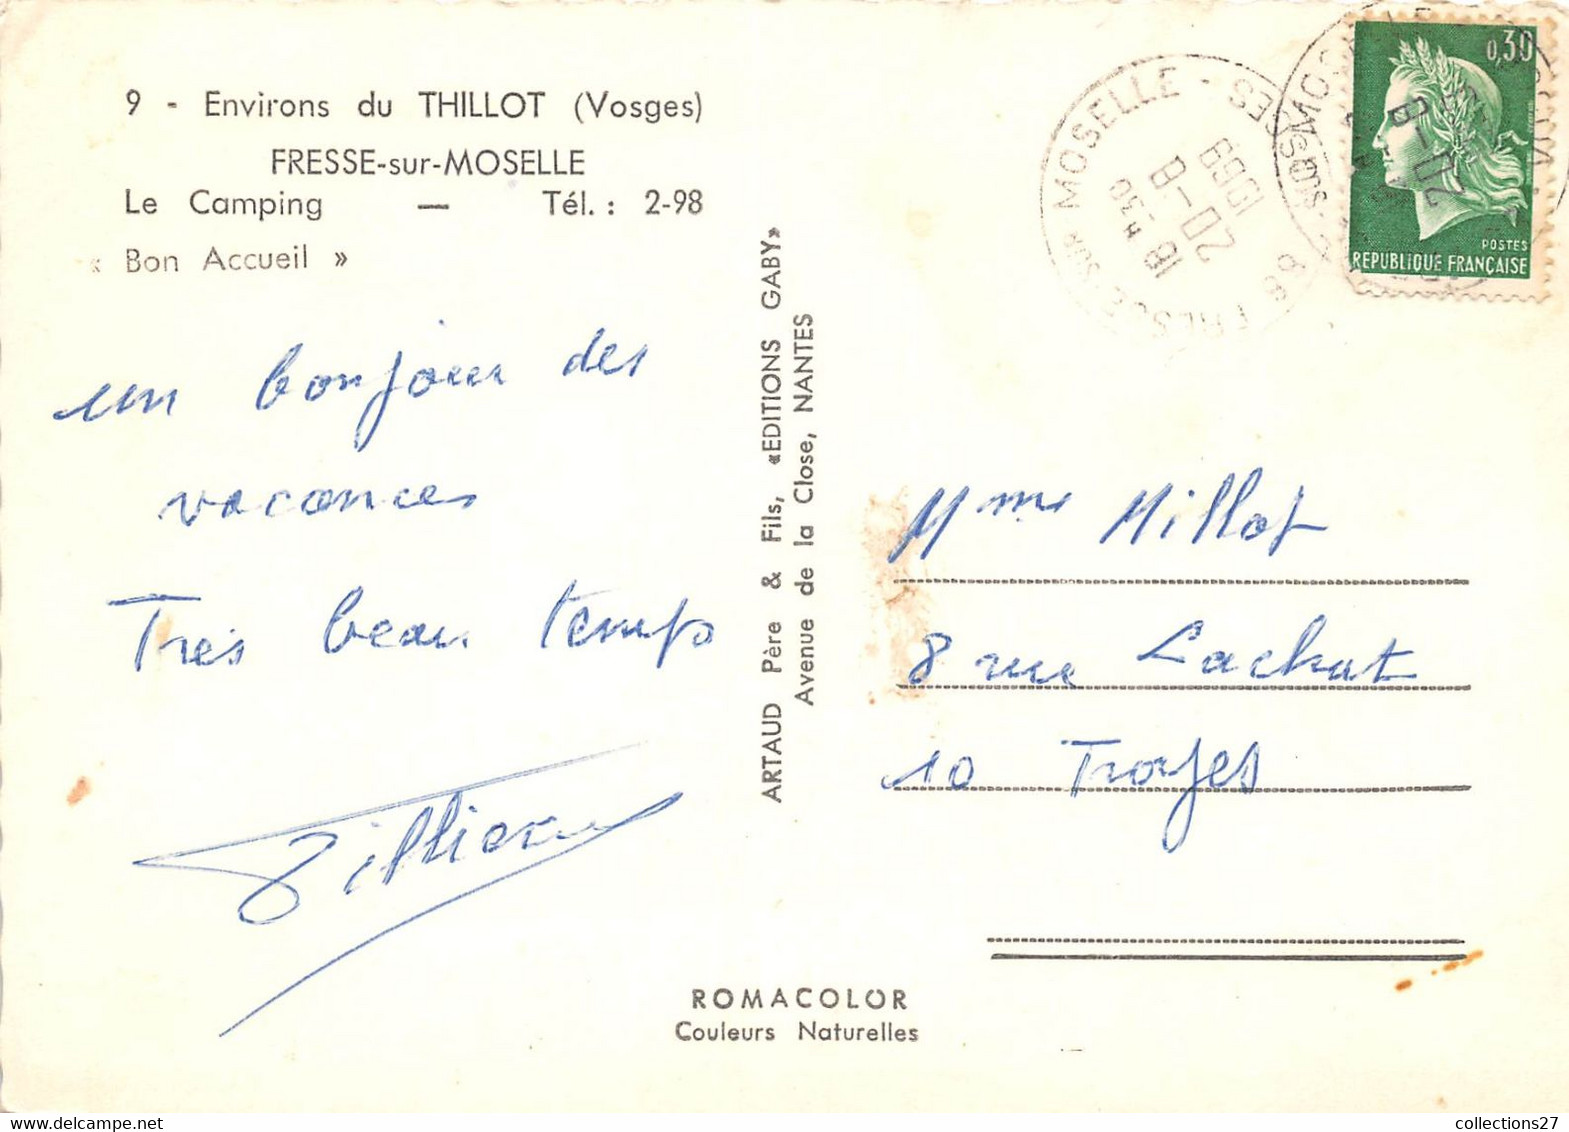 9 - Environs du THILLOT (Vosges)
FRESSE-sur-MOSELLE
Le Camping — Tél. : 2-98
« Bon Accueil »
un bonjour des
vacances
Très beau temps
ARTAUD Père & Fils, «EDITIONS GABY»
Avenue de la Close, NANTES
SUR MOSELLE - VOSGES
18 H 30
20-8
1969
88 FRESSE
0,30
POSTES
REPUBLIQUE FRANÇAISE
Mme Millot
8 rue Lachat
10 Troyes
ROMACOLOR
Couleurs Naturelles
collections27